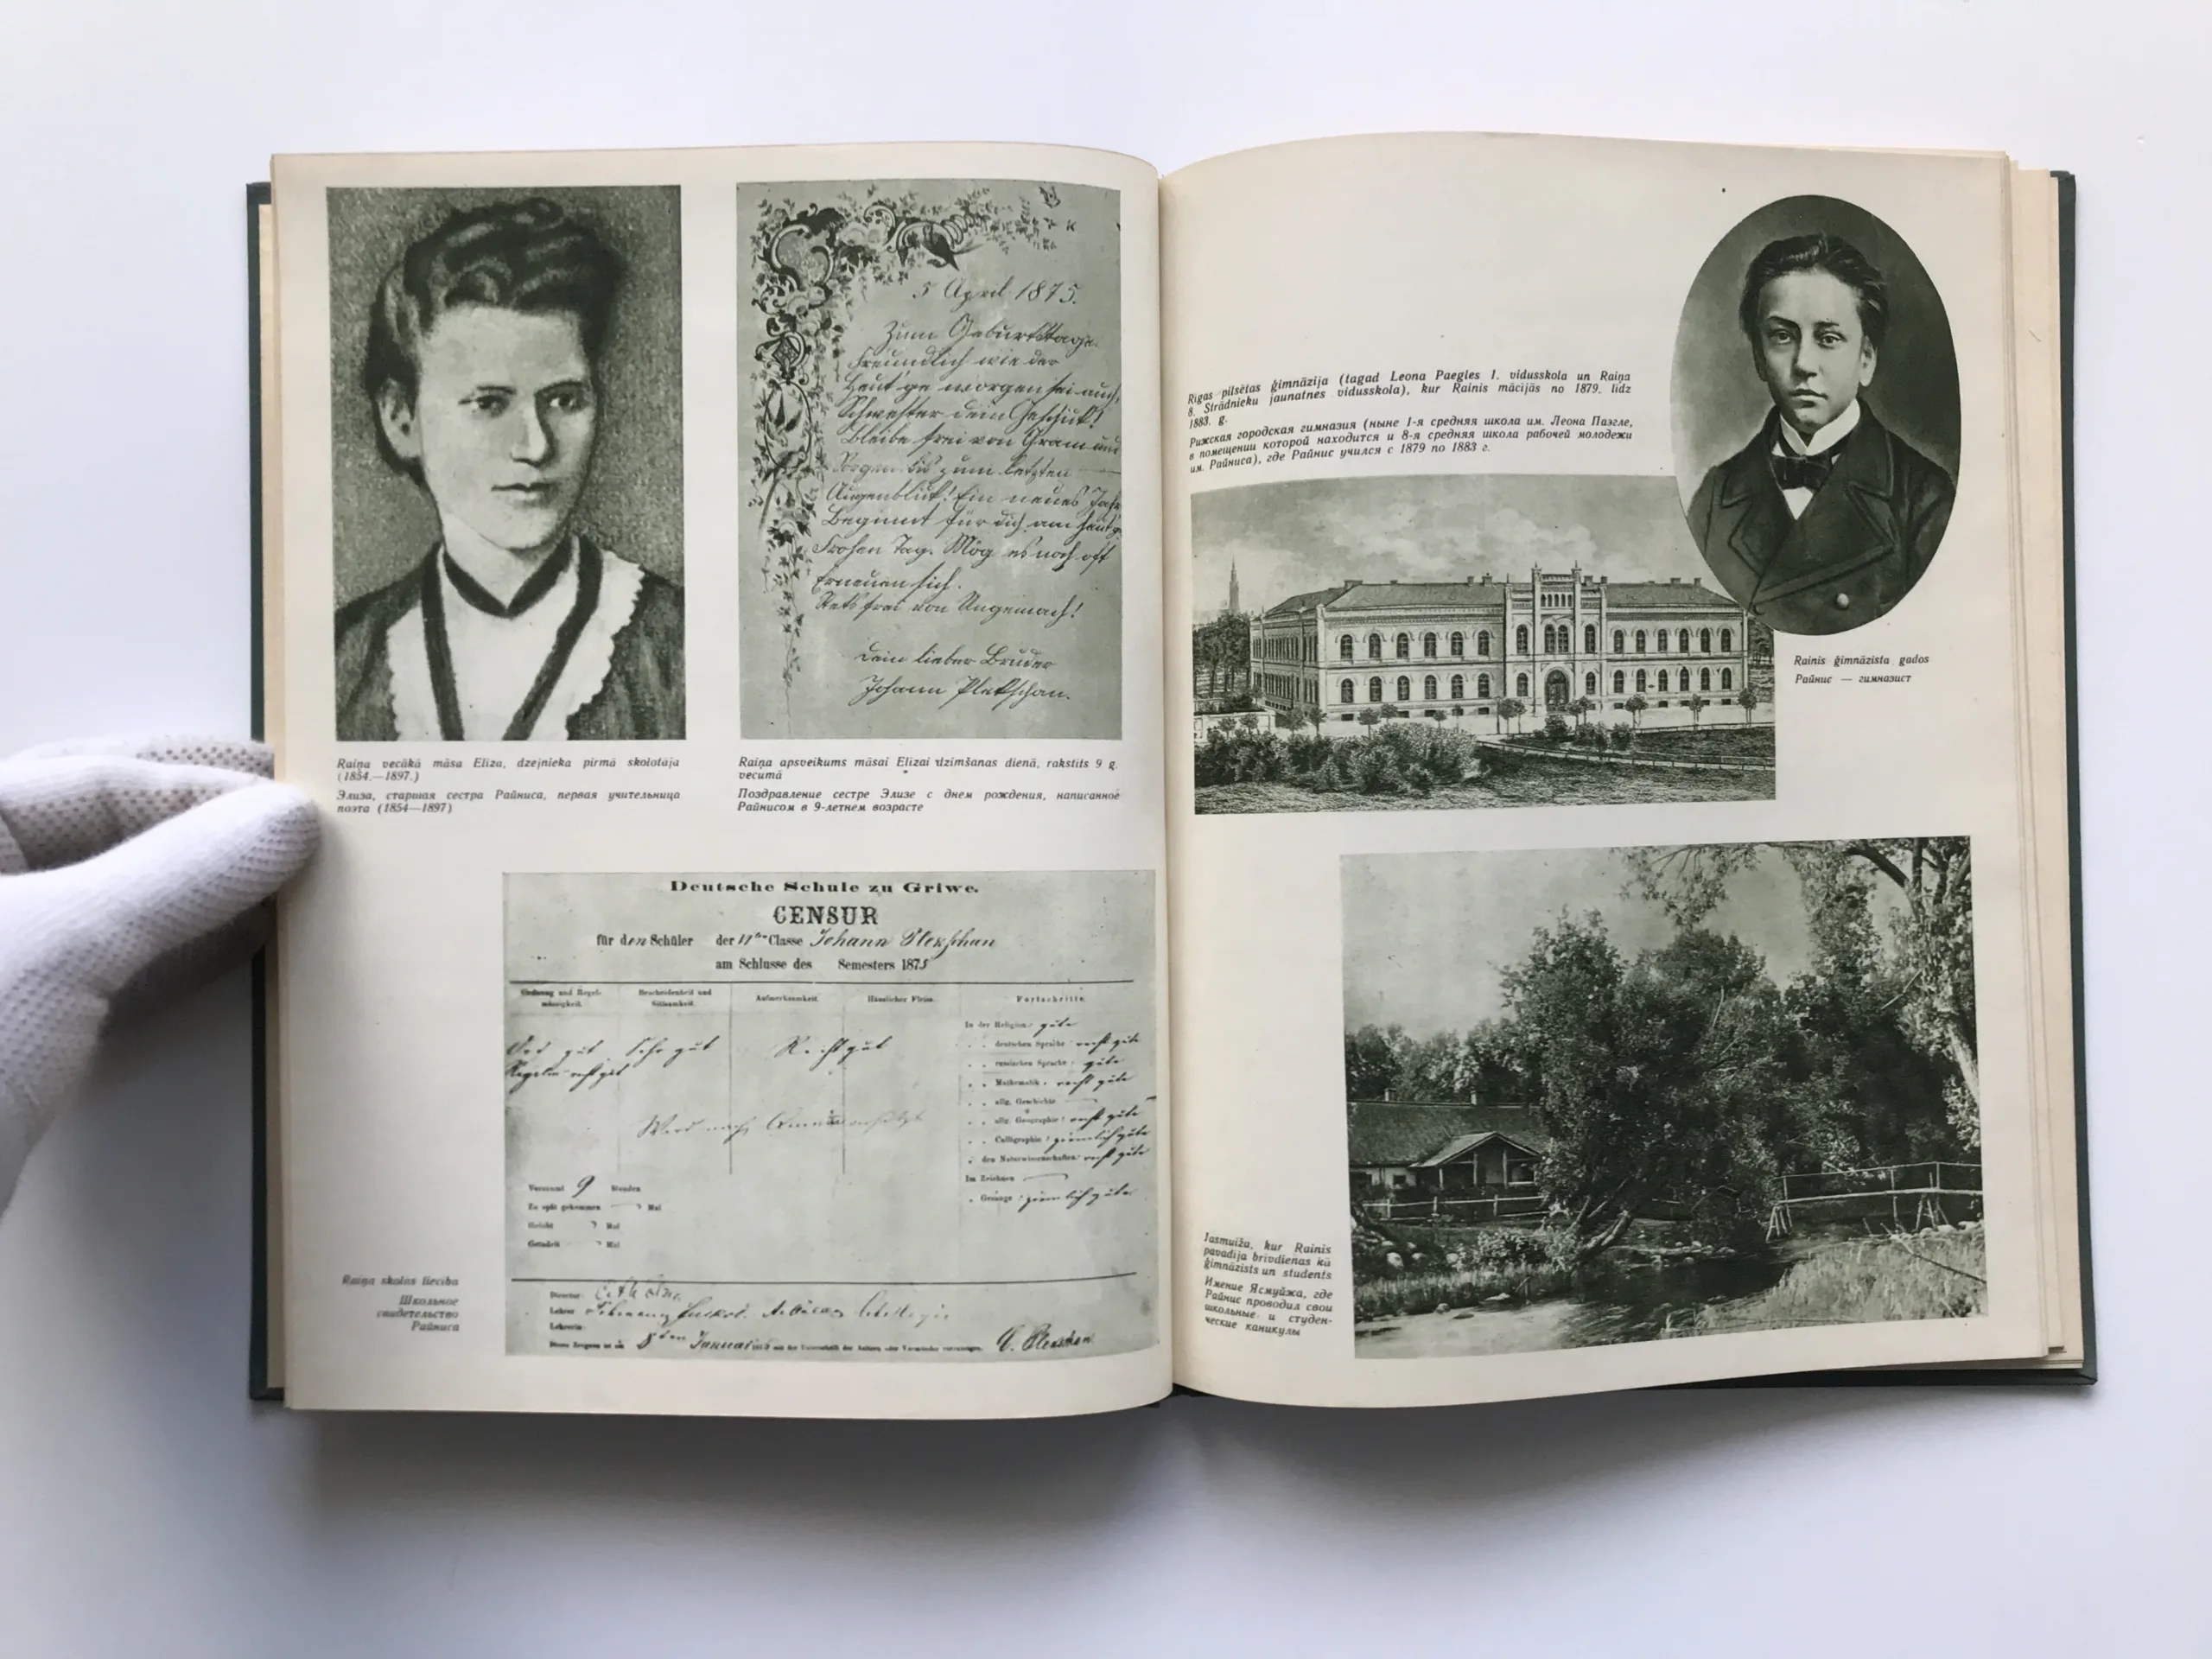 5 April 1875.
Zum Geburtstage.
Freundlich wie der
heut'ge morgen sei auch,
Schwester dein Geschick!
Bleibe frei von Gram und
Sorgen bis zum letzten
Augenblick! Ein neues Jahr
Beginnt für dich am heut'g
Frohen Tag. Mög es noch oft
Erneuen sich.
Stets frei von Ungemach!
Dein lieber Bruder
Johann Plekschan.
Raiņa vecākā māsa Elīza, dzejnieka pirmā skolotāja
(1854.—1897.)
Элиза, старшая сестра Райниса, первая учительница
поэта (1854—1897)
Raiņa apsveikums māsai Elīzai dzimšanas dienā, rakstīts 9 g.
vecumā
Поздравление сестре Элизе с днем рождения, написанное
Райнисом в 9-летнем возрасте
Deutsche Schule zu Griwe.
CENSUR
für den Schüler der IIten Classe Johann Plekschan
am Schlusse des Semesters 1875
Ordnung und Regel-
mässigkeit.
Bescheidenheit und
Sittsamkeit.
Aufmerksamkeit.
Häuslicher Fleiss.
Fortschritte
Ord gut
Regelm recht gut
Sehr gut
Recht gut
Wird nach
In der Religion: gute
" " deutschen Sprache: recht gute
" " russischen Sprache: gute
" " Mathematik: recht gute
" " allg. Geschichte —
" " allg. Geographie: recht gute
" " Calligraphie: ziemlich gute
" den Naturwissenschaften: recht gute
Im Zeichnen —
" Gesange: ziemlich gute
Versäumt 9 Stunden
Zu spät gekommen — Mal
Mal
Getadelt — Mal
Director:
Lehrer
Lehrerin
Dieses Zeugniss ist am 8ten Januar mit der Unterschrift der Aeltern oder Vormünder vorzuzeigen.
Raiņa skolas liecība
Школьное
свидетельство
Райниса
Rīgas pilsētas ģimnāzija (tagad Leona Paegles 1. vidusskola un Raiņa
8. Strādnieku jaunatnes vidusskola), kur Rainis mācījās no 1879. līdz
1883. g.
Рижская городская гимназия (ныне 1-я средняя школа им. Леона Паэгле,
в помещении которой находится и 8-я средняя школа рабочей молодежи
им. Райниса), где Райнис учился с 1879 по 1883 г.
Rainis ģimnāzista gados
Райнис — гимназист
Jasmuiža, kur Rainis
pavadīja brīvdienas kā
ģimnāzists un students
Имение Ясмуйжа, где
Райнис проводил свои
школьные и студен-
ческие каникулы